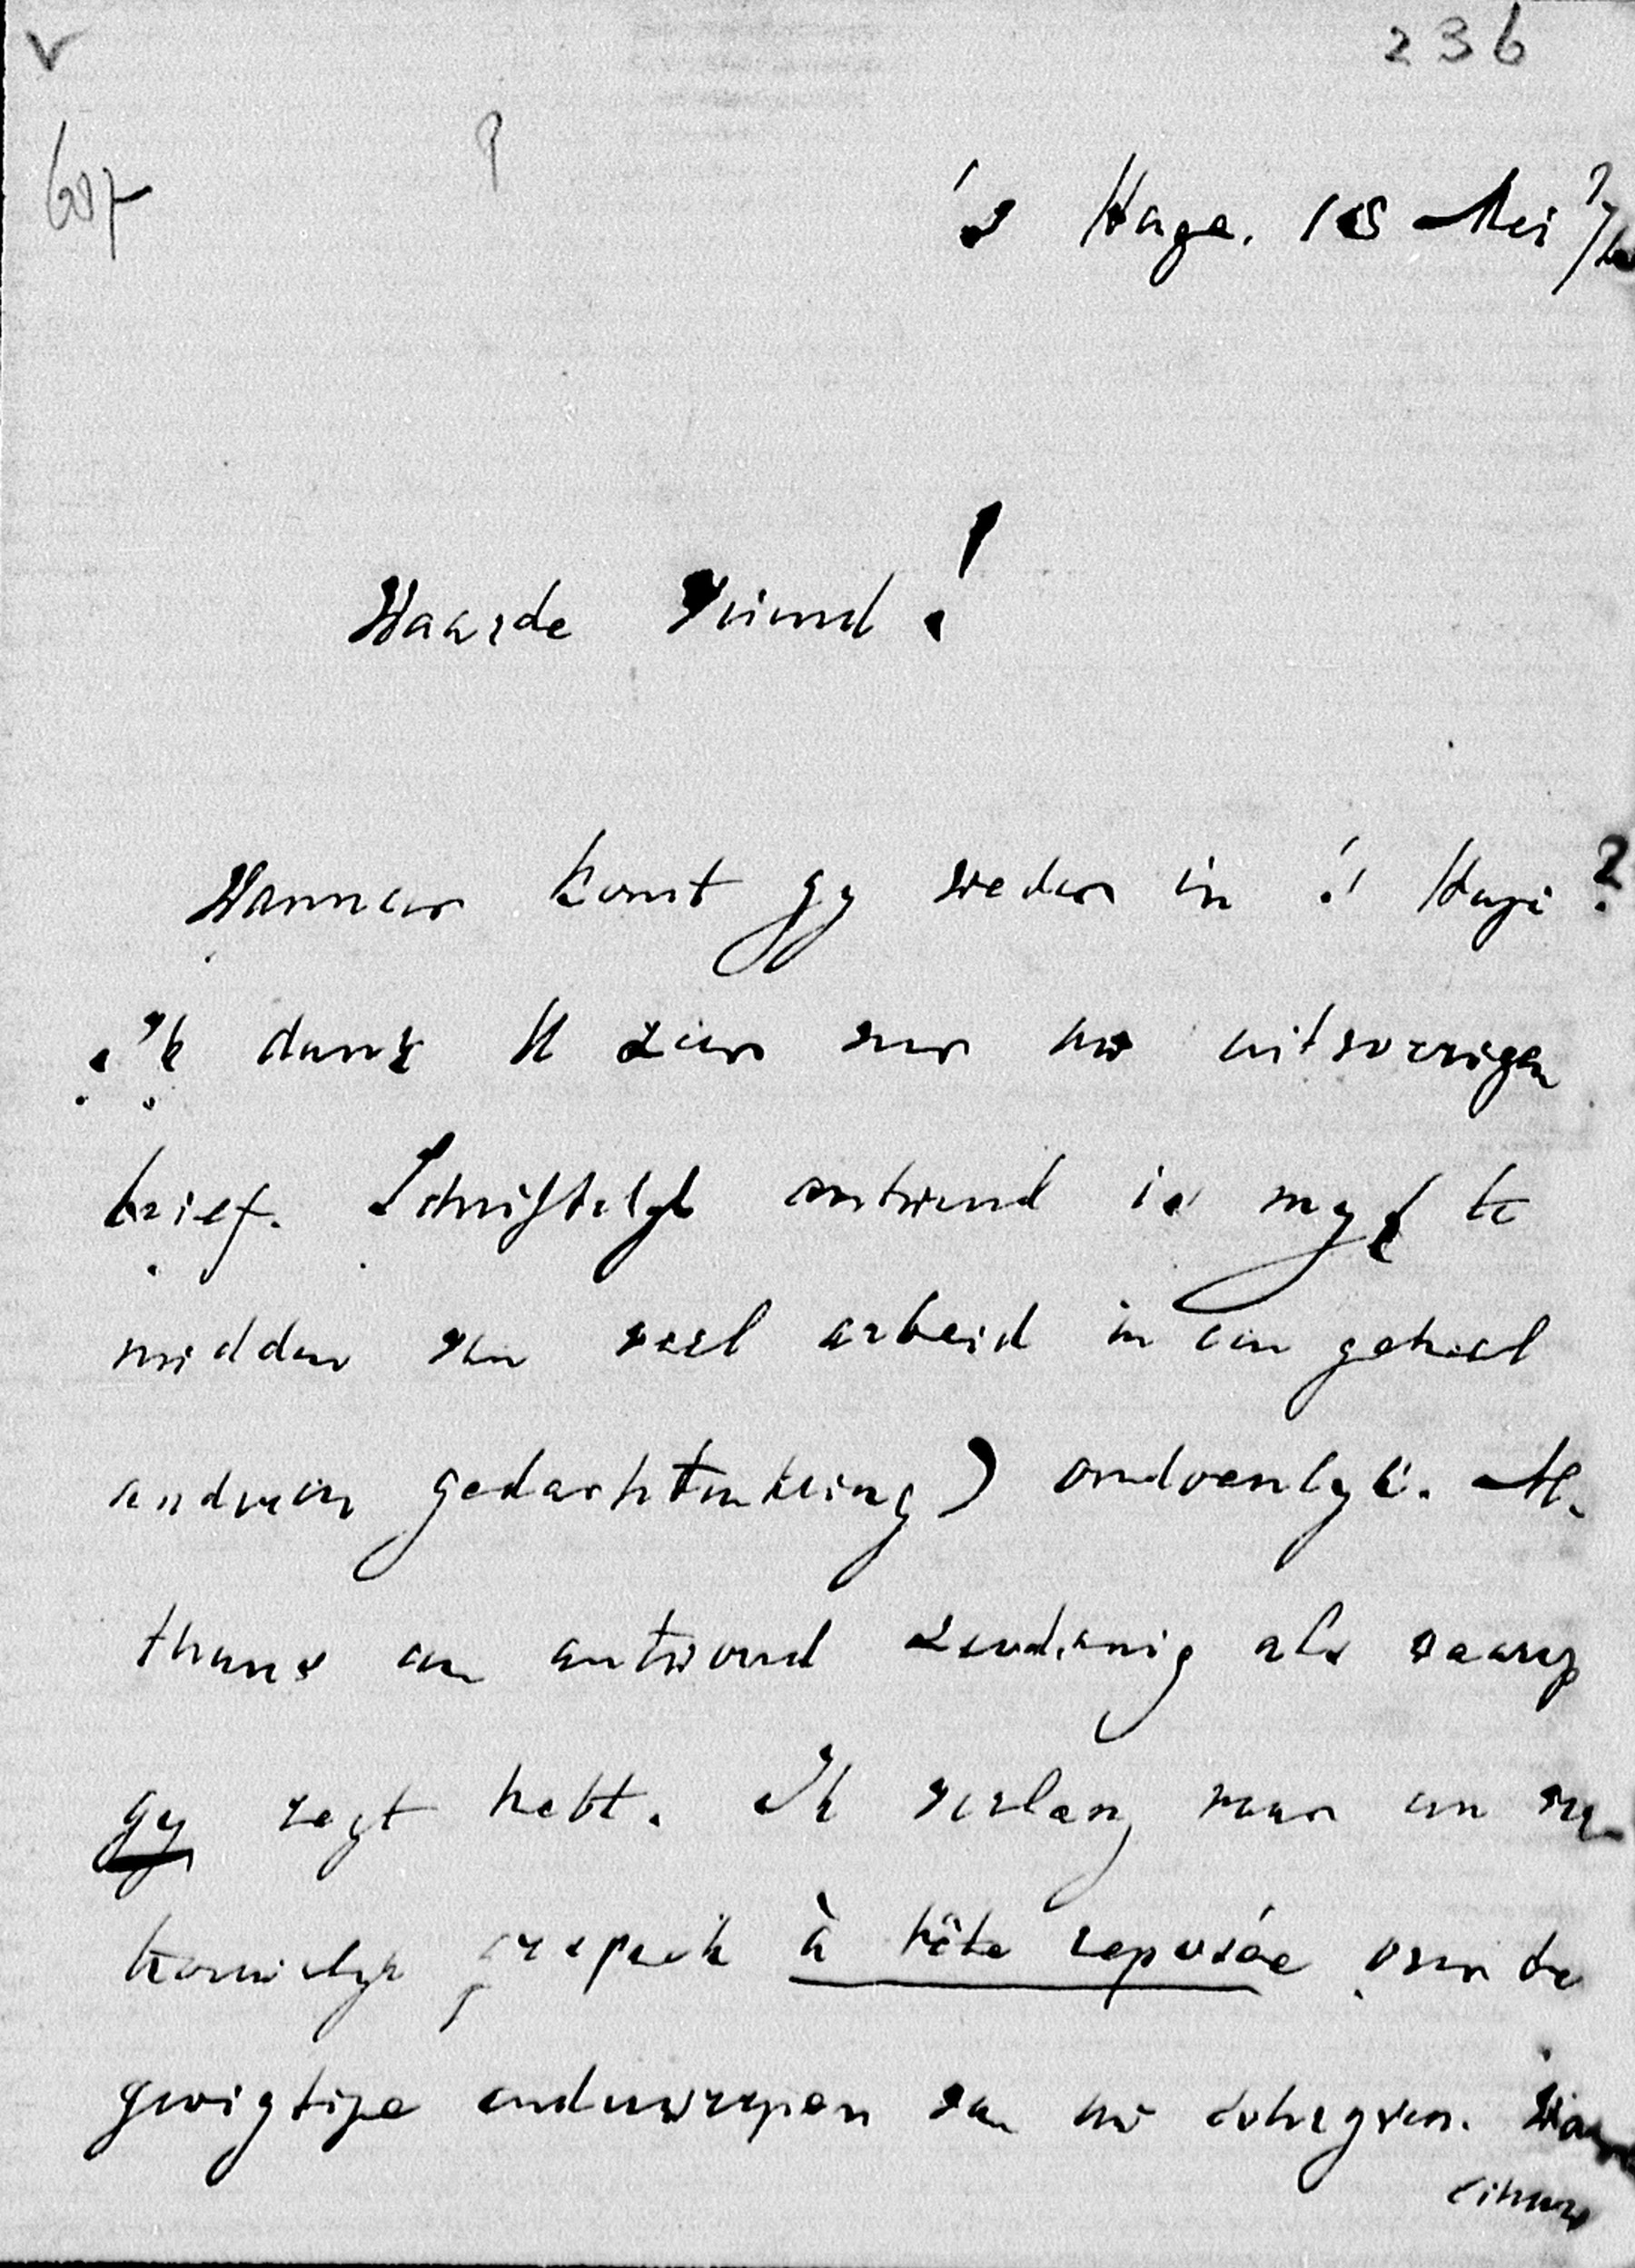 236
607
?
's Hage. 18 Mei
Waarde Vriend!
Wanneer komt gy weder in 's Hage?
Ik dank U zeer voor uw uitvoerigen
brief. Schriftelyk antwoord is my (te
midden van veel arbeid in een geheel
anderen gedachtenkring) ondoenlyk. Al-
thans een antwoord zoodanig als waarop
gy regt hebt. Ik verlang naar een
gesprek à tête reposée over de
gewigtige onderwerpen van uw schryven.